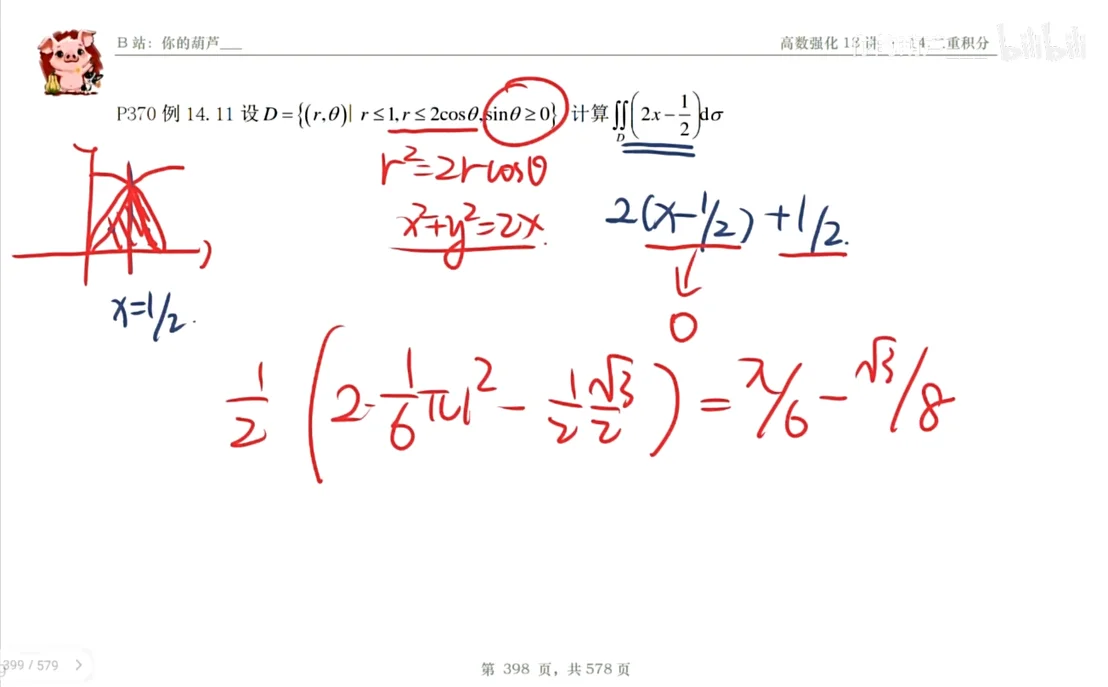 B 站：你的葫芦___
高数强化 13 讲
14 二重积分
bilibili
P370 例 14.11 设 D = {(r,θ)| r ≤ 1, r ≤ 2cosθ, sinθ ≥ 0} 计算 ∬_D (2x − 1/2) dσ
r² = 2r cosθ
x² + y² = 2x.
2(x − 1/2) + 1/2.
0
x = 1/2.
1/2 (2 · 1/6 π 1² − 1/2 √3/2) = π/6 − √3/8
399 / 579 >
第 398 页，共 578 页